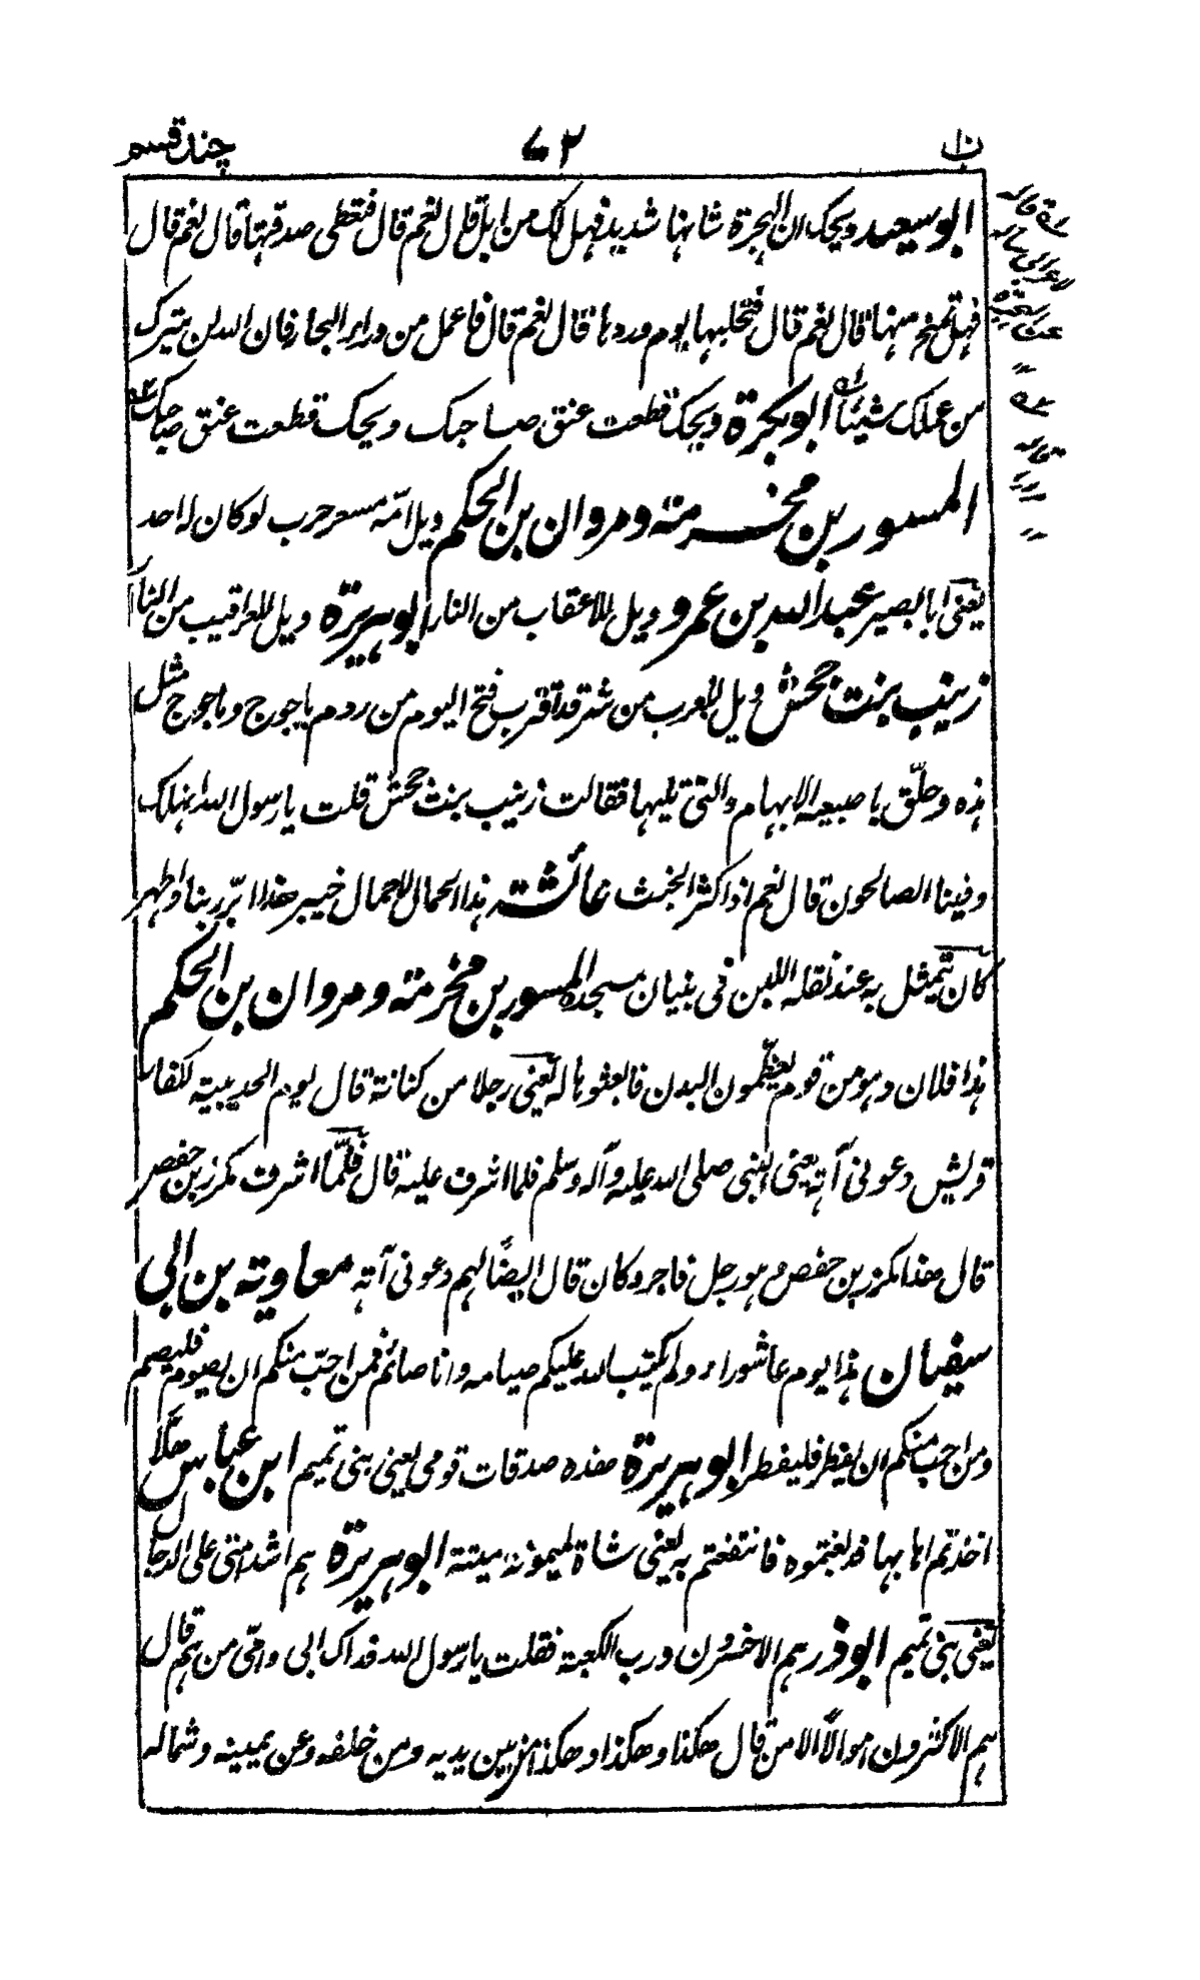 چند قسم
٧٢
ن
ابو سعيد ويحك ان الهجرة شانها شديد فهل لك من ابل قال نعم قال فتعطى صدقتها قال نعم قال
فهل تمنح منها قال نعم قال فتحلبها يوم وردها قال نعم قال فاعمل من وراء البحار فان الله لن يترك
من عملك شيئا ابو بكرة ويحك قطعت عنق صاحبك ويحك قطعت عنق صاحبك
المسور بن مخرمة ومروان بن الحكم ويل امّه مسعر حرب لو كان له احد
يعنى ابا بصير عبد الله بن عمرو ويل للاعقاب من النار ابو هريرة ويل للعراقيب من النار
زينب بنت جحش ويل للعرب من شر قد اقترب فتح اليوم من ردم ياجوج وماجوج مثل
هذه وحلّق باصبعيه الابهام والتى تليها فقالت زينب بنت جحش قلت يا رسول الله انهلك
وفينا الصالحون قال نعم اذا كثر الخبث عائشة هذا الحمال لا حمال خيبر هذا ابرّ ربنا واطهر
كان يتمثل به عند نقله اللبن فى بنيان مسجده المسور بن مخرمة ومروان بن الحكم
هذا فلان وهو من قوم يعظّمون البدن فابعثوها له يعنى رجلا من كنانة قال يوم الحديبية لكفار
قريش دعونى آته يعنى النبى صلى الله عليه وآله وسلم فلما اشرف عليه قال فلمّا اشرف مكرز بن حفص
قال هذا مكرز بن حفص وهو رجل فاجر وكان قال ايضًا لهم دعونى آته معاوية بن ابى
سفيان هذا يوم عاشوراء ولم يكتب الله عليكم صيامه وانا صائم فمن احبّ منكم ان يصوم فليصم
ومن احب منكم ان يفطر فليفطر ابو هريرة هذه صدقات قومى يعنى بنى تميم ابن عباس هلّا
اخذتم اهابها فدبغتموه فانتفعتم به يعنى شاة لميمونة ميتة ابو هريرة هم اشد امتى على الدجال
يعنى بنى تميم ابو ذر هم الاخسرون ورب الكعبة فقلت يا رسول الله فداك ابى وامّى من هم قال
هم الاكثرون اموالًا الا من قال هكذا وهكذا وهكذا من بين يديه ومن خلفه وعن يمينه وشماله
قاله
لاعرابى ساله
عن الهجرة